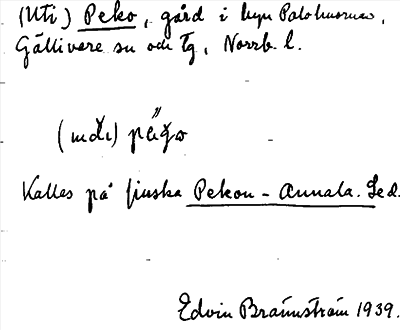 (Uti) Peko, gård i byn Palohuornas,
Gällivare sn och tg, Norrb. l.
Kallas på finska Pekon-Annala. Se d.
Edvin Brännström 1939.